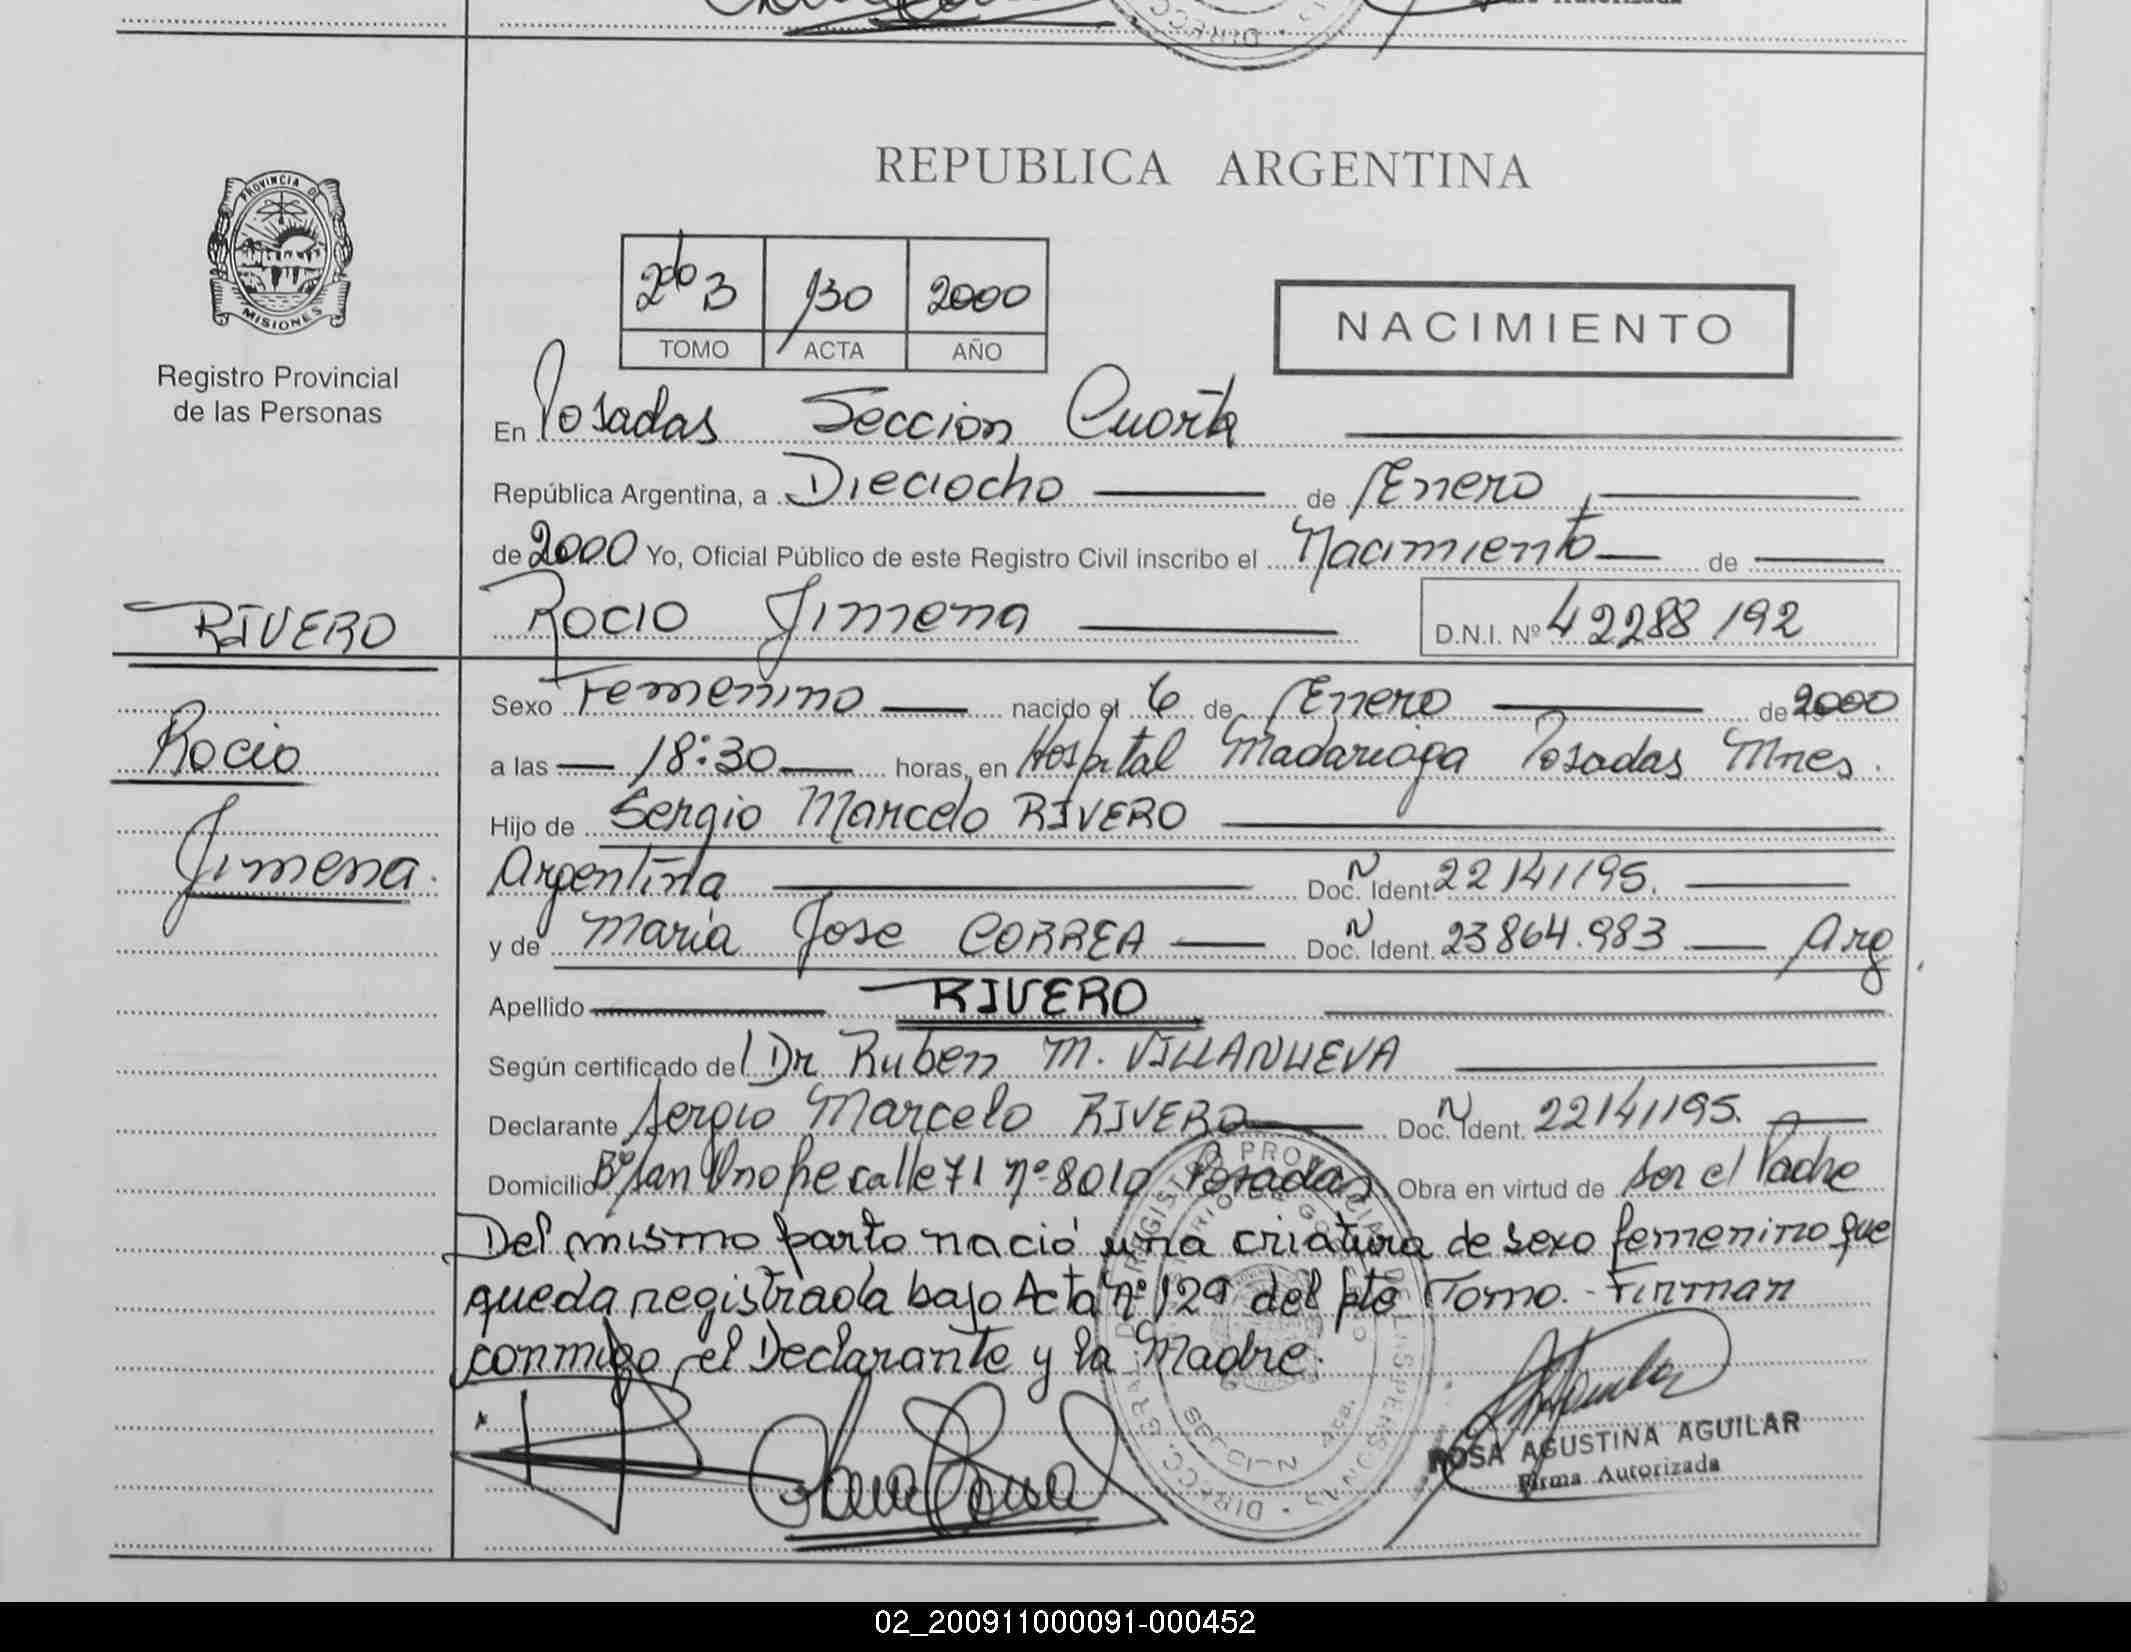 REPUBLICA ARGENTINA
PROVINCIA DE
MISIONES
Registro Provincial
de las Personas
2do 3 130 2000
TOMO ACTA AÑO
NACIMIENTO
En Posadas Seccion Cuarta
República Argentina, a Dieciocho de Enero
de 2000 Yo, Oficial Público de este Registro Civil inscribo el Nacimiento de
RIVERO
Rocio Jimena
D.N.I. Nº 42288192
Rocio
Jimena.
Sexo Femenino nacido el 6 de Enero de 2000
a las 18:30 horas, en Hospital Madariaga Posadas Mnes.
Hijo de Sergio Marcelo RIVERO
Argentina Doc. N Ident. 22141195.
y de Maria Jose CORREA Doc. N Ident. 23864.983 Arg
Apellido RIVERO
Según certificado del Dr Ruben M. VILLANUEVA
Declarante Sergio Marcelo RIVERO Doc. N Ident. 22141195.
Domicilio Bº San Onofre calle 71 nº 8010 Posadas Obra en virtud de ser el Padre
Del mismo parto nació una criatura de sexo femenino que
queda registrada bajo Acta nº 129 del pte Tomo.- Firman
conmigo el Declarante y la Madre.
ROSA AGUSTINA AGUILAR
Firma Autorizada
02_200911000091-000452